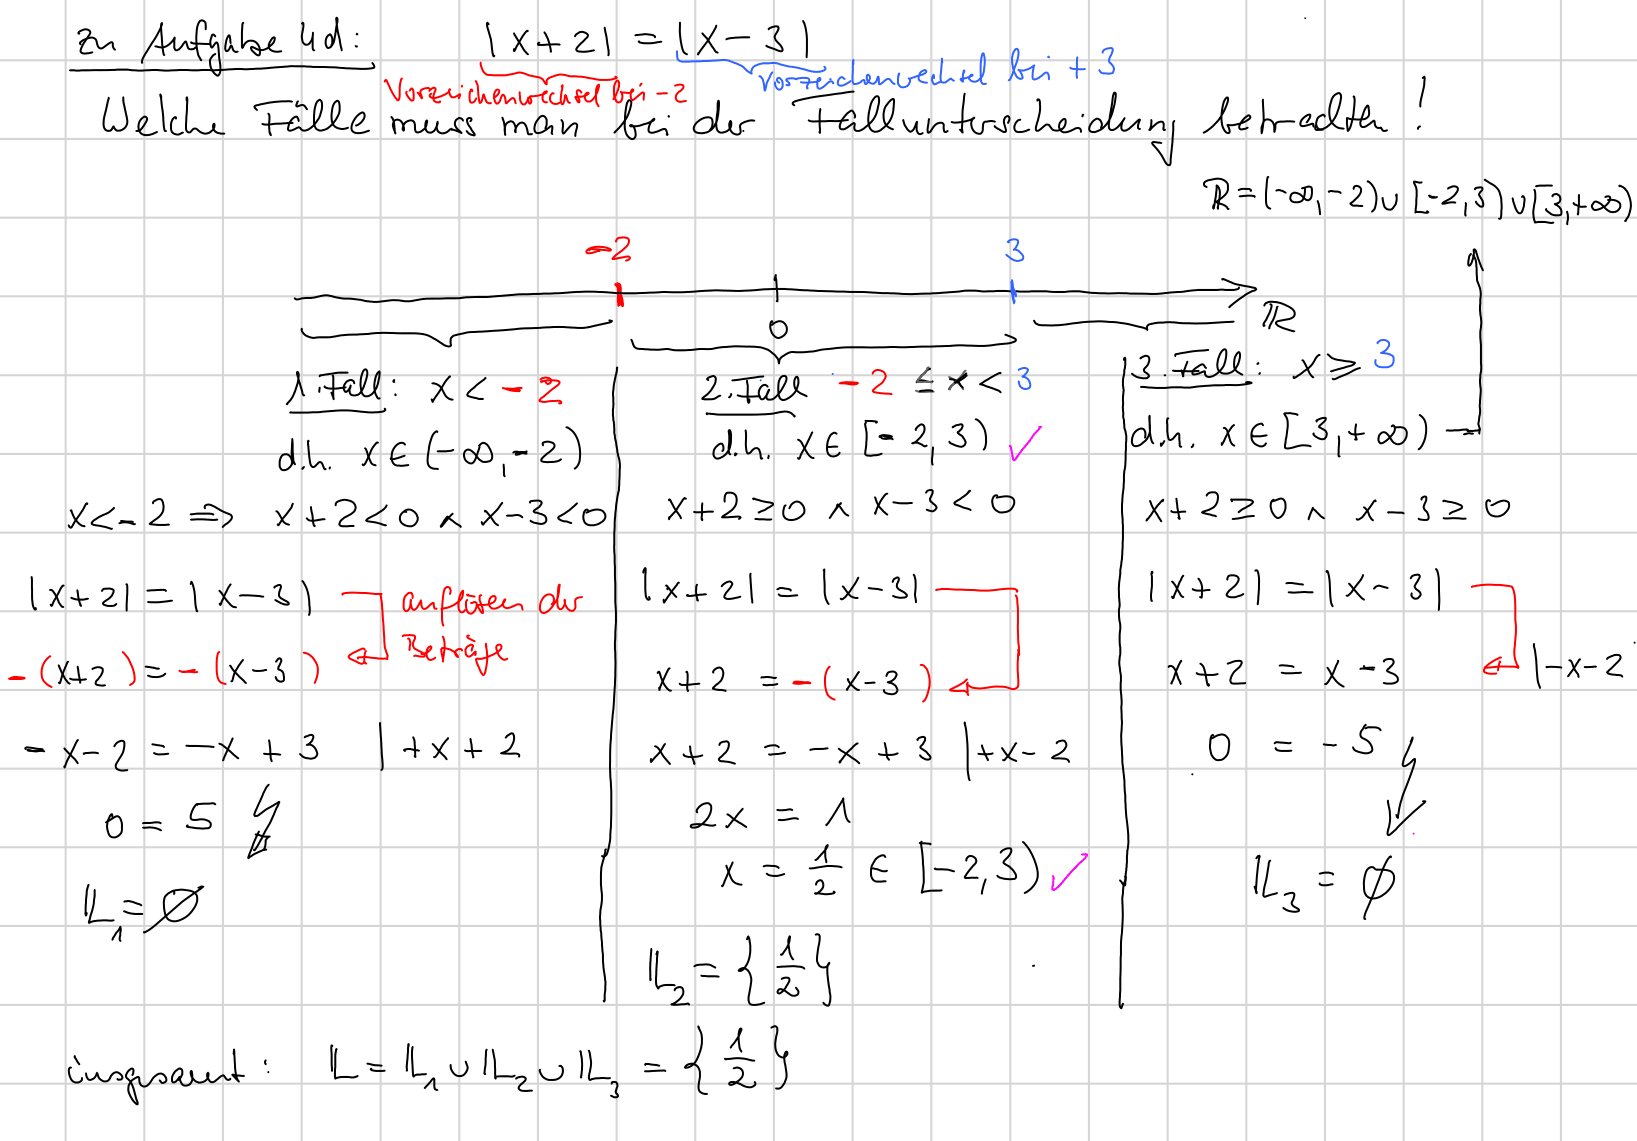 zu Aufgabe 4d: |x+2| = |x-3|
Vorzeichenwechsel bei -2
Vorzeichenwechsel bei +3
Welche Fälle muss man bei der Fallunterscheidung betrachten!
ℝ = (-∞,-2) ∪ [-2,3) ∪ [3,+∞)
-2 3
0 ℝ
1. Fall: x < -2
d.h. x ∈ (-∞,-2)
x < -2 ⇒ x+2 < 0 ∧ x-3 < 0
|x+2| = |x-3|
auflösen der
Beträge
-(x+2) = -(x-3)
-x-2 = -x+3 |+x+2
0 = 5 ↯
𝕃₁ = ∅
2. Fall -2 ≤ x < 3
d.h. x ∈ [-2,3) ✓
x+2 ≥ 0 ∧ x-3 < 0
|x+2| = |x-3|
x+2 = -(x-3)
x+2 = -x+3 |+x-2
2x = 1
x = 1/2 ∈ [-2,3) ✓
𝕃₂ = {1/2}
3. Fall: x ≥ 3
d.h. x ∈ [3,+∞)
x+2 ≥ 0 ∧ x-3 ≥ 0
|x+2| = |x-3|
x+2 = x-3 |-x-2
0 = -5 ↯
𝕃₃ = ∅
insgesamt: 𝕃 = 𝕃₁ ∪ 𝕃₂ ∪ 𝕃₃ = {1/2}